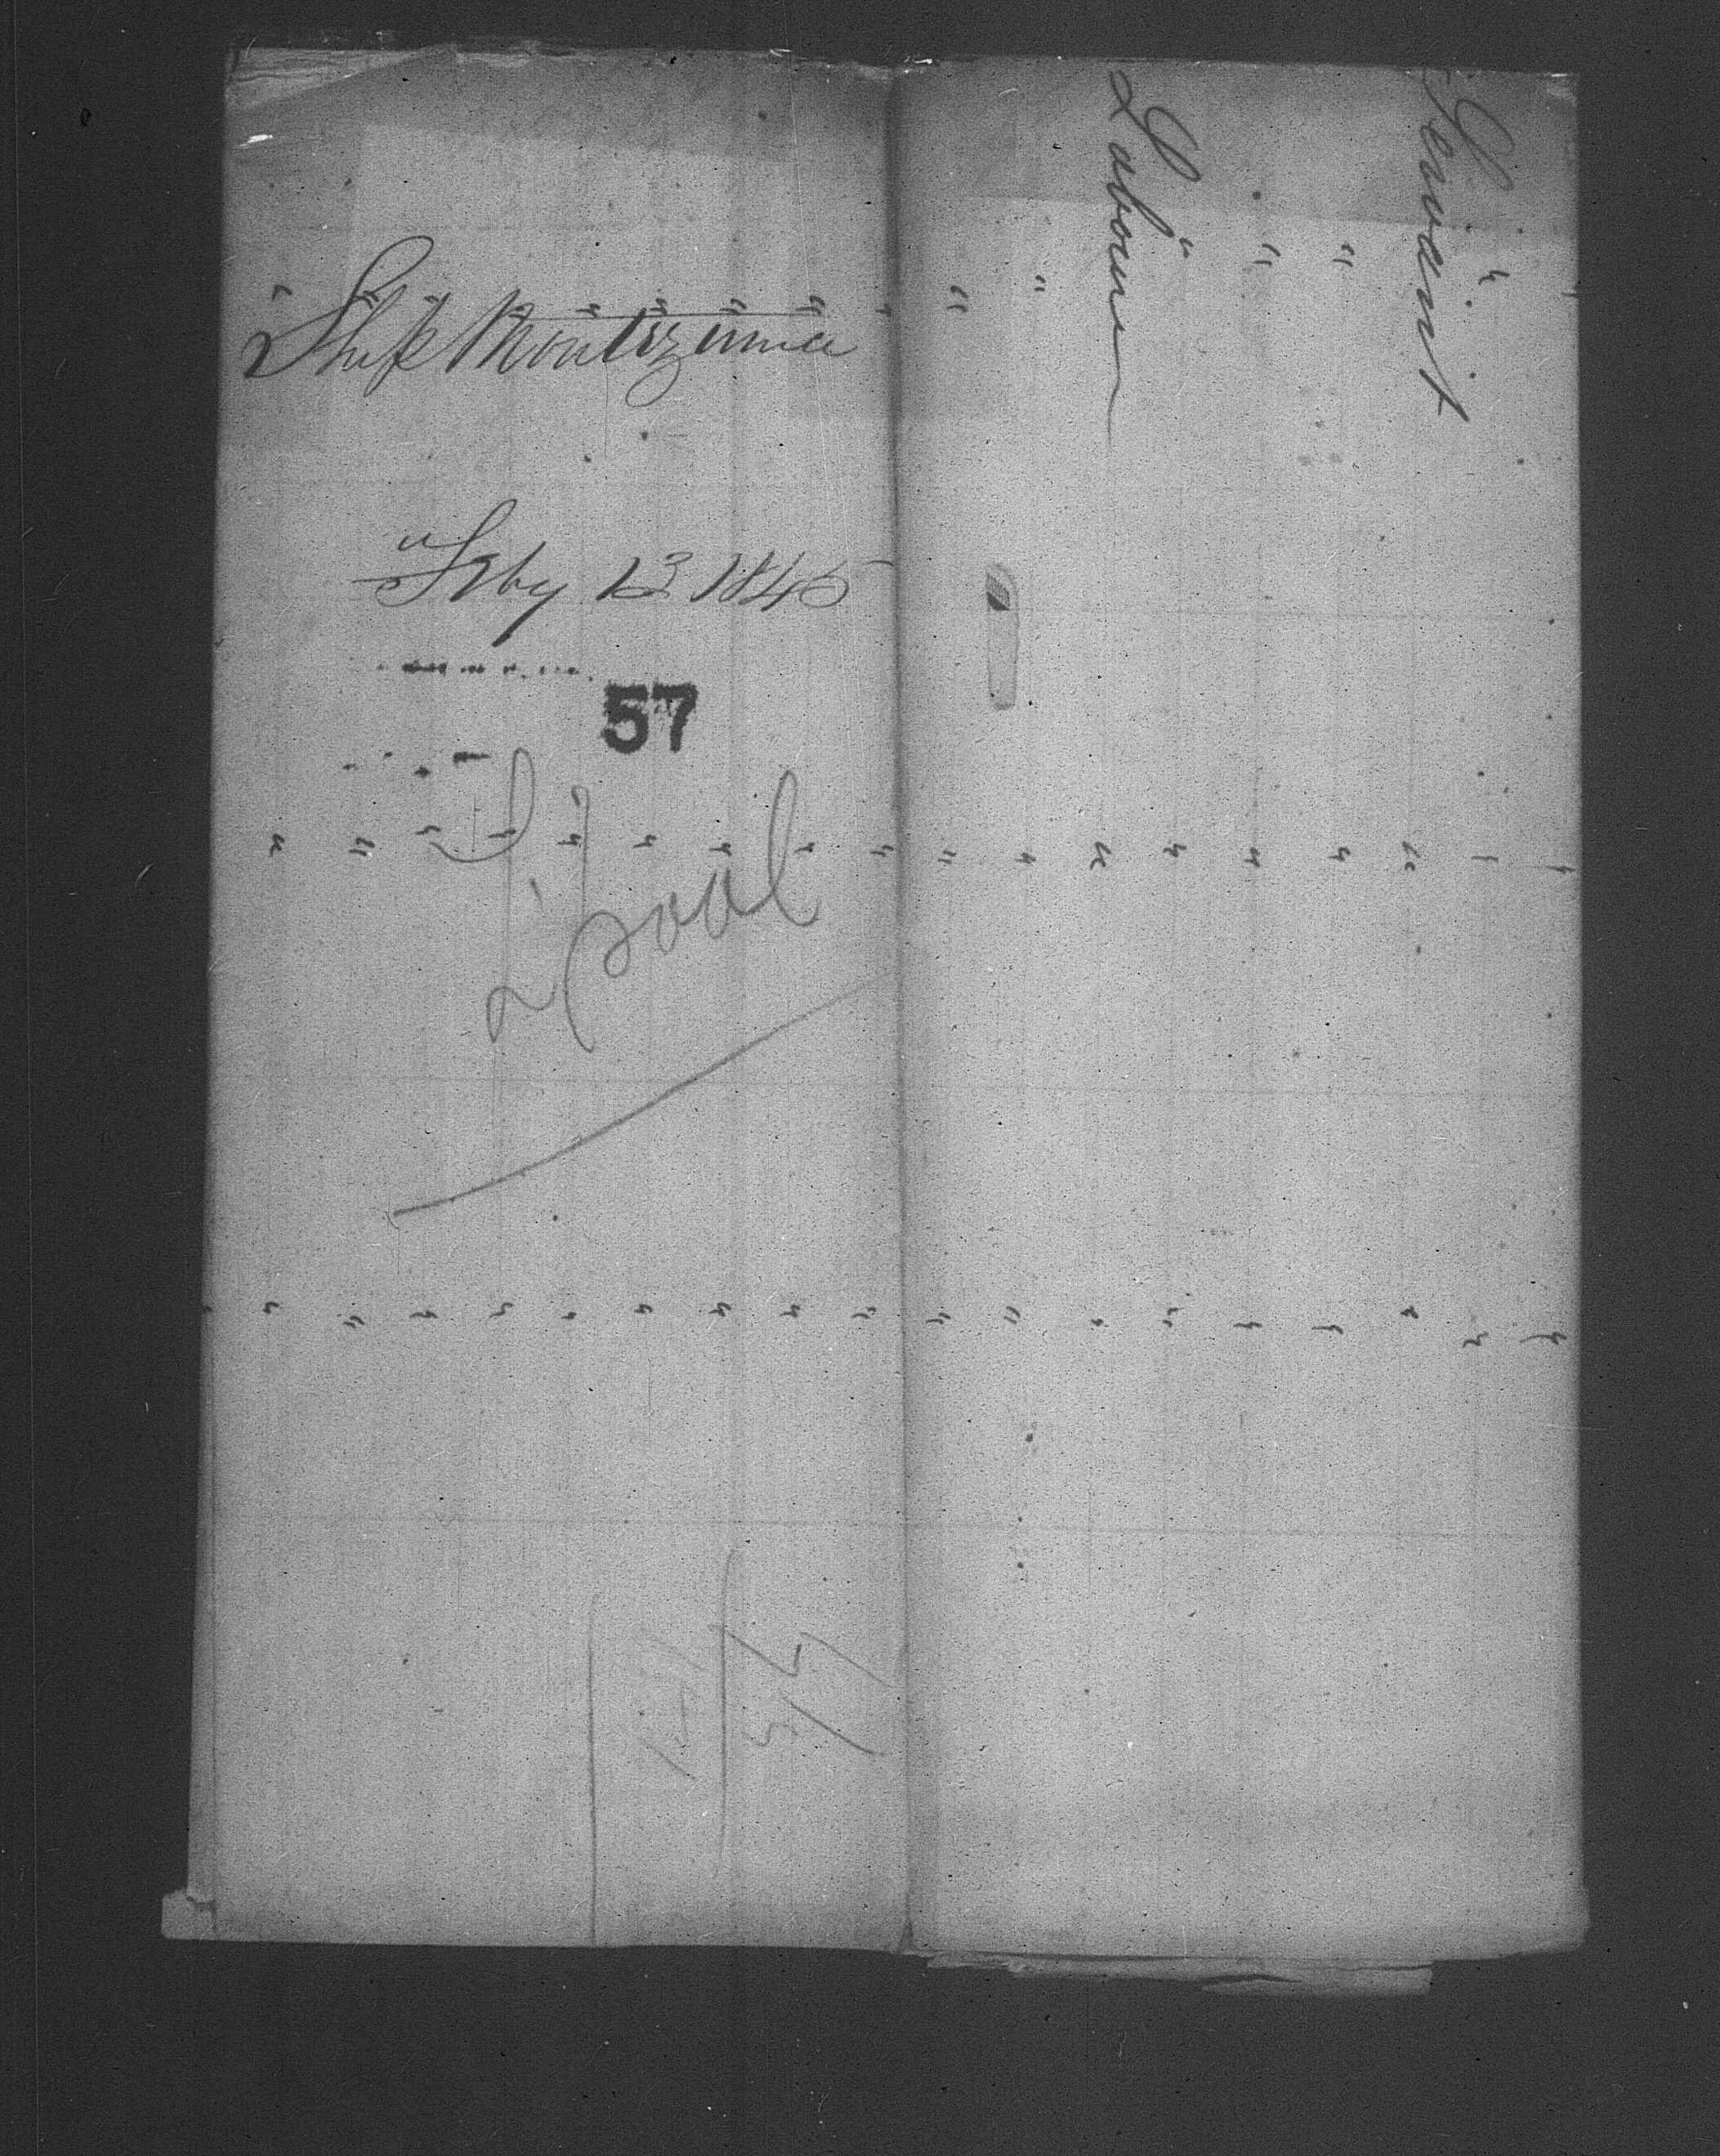 Ship Montezuma
Feby 13 1845
57
L'pool
Labourer
Servant